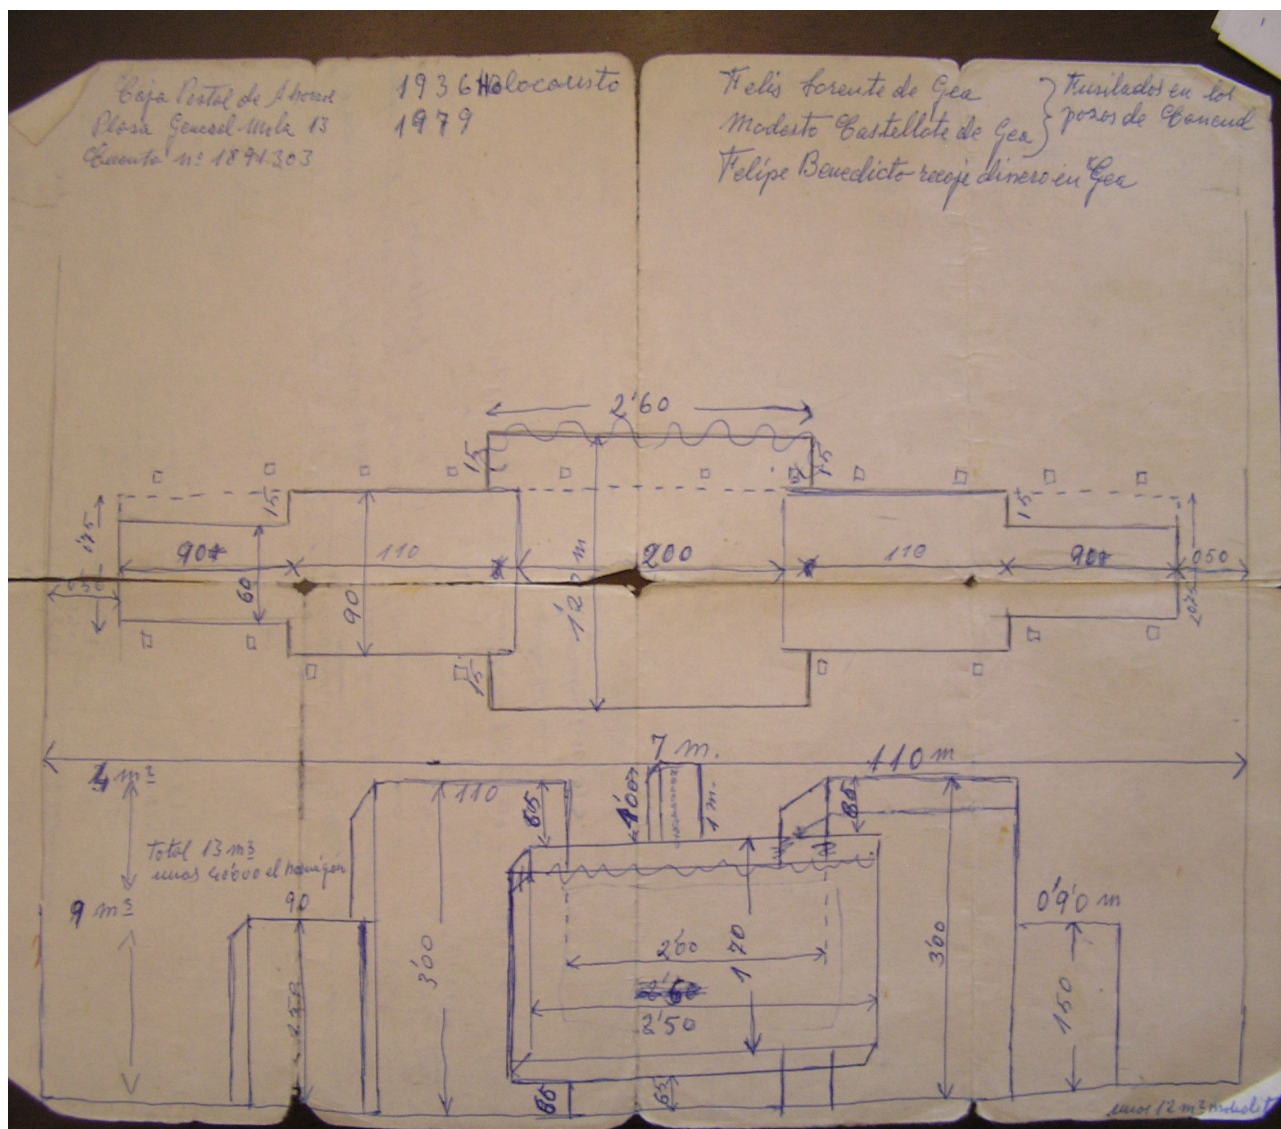 Caja Postal de Ahorros
Plasa General Mola 13
Cuenta nº 1891.303
1936 Holocausto
1979
Felis Lorente de Gea
Modesto Castellote de Gea
Fusilados en los
pozos de Caneud
Felipe Benedicto recoje dinero en Gea
2'60
15
15
15
15
175
90
110
200
110
90
050
60
90
1'20 m
15
7 m.
4 m³
110
65
1'00
1 m.
110 m
65
Total 13 m³
unos 40'000 el hormigón
9 m³
90
0'90 m
3'00
2'00
1'70
3'00
2'50
150
65
65
unos 12 m³